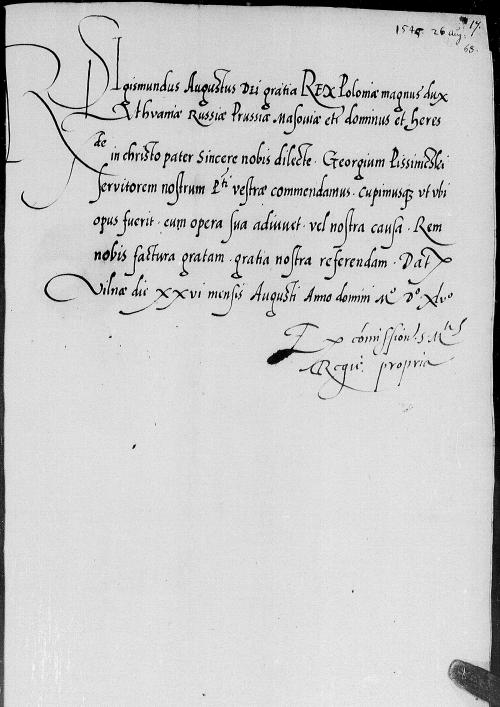 17.
1545. 26 Aug.
68.
SIgismundus Augustus Dei gratia REX Poloniæ magnus dux
Lythvaniæ Russiæ Prussiæ Masoviæ etc dominus et heres
Rde in christo pater sincere nobis dilecte. Georgium Pissimieski
servitorem nostrum Pti vestræ commendamus. cupimusq ut ubi
opus fuerit. eum opera sua adiuvet. vel nostra causa. Rem
nobis factura gratam. gratia nostra referendam. Dat
Vilnæ die XXVI mensis Augusti Anno domini Mo Do Xlvo
Ex comissione S Mtis
Regie propria